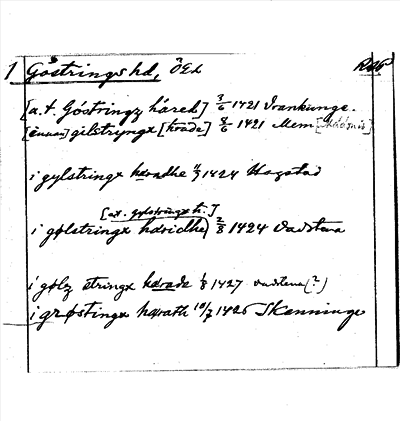 1 Göstrings hd, ÖGL RAP
[a.t. Góstringz háred] 3/6 1421 Vrankunge.
[ennan] gilstryngx [hrade] 8/6 1421 Mem
i gylstringx hæradhe 4/7 1424 Hagstad
[at. gølstringx h.]
i gølstringx hæridhe 2/8 1424 Vadstena
i gølz stringx hærade 1/8 1427 vadstena (?)
i grøstingx hærath 10/7 1426 Skenninge